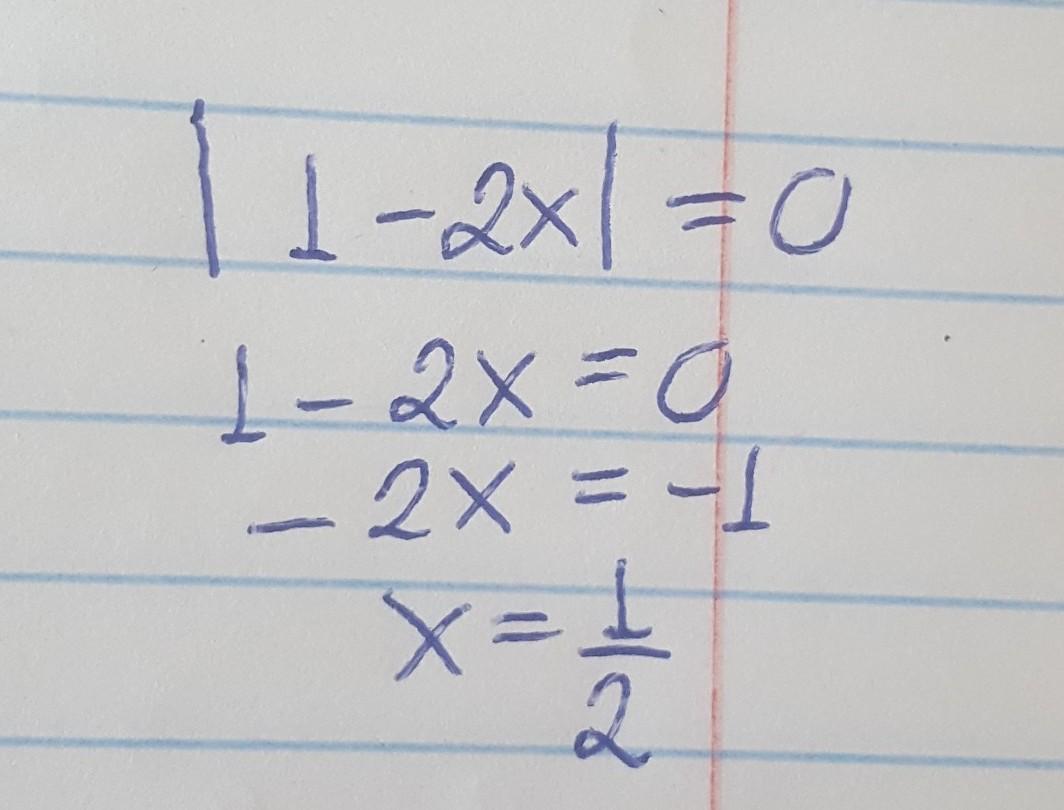 |1-2x|=0
1-2x=0
-2x=-1
x=1/2